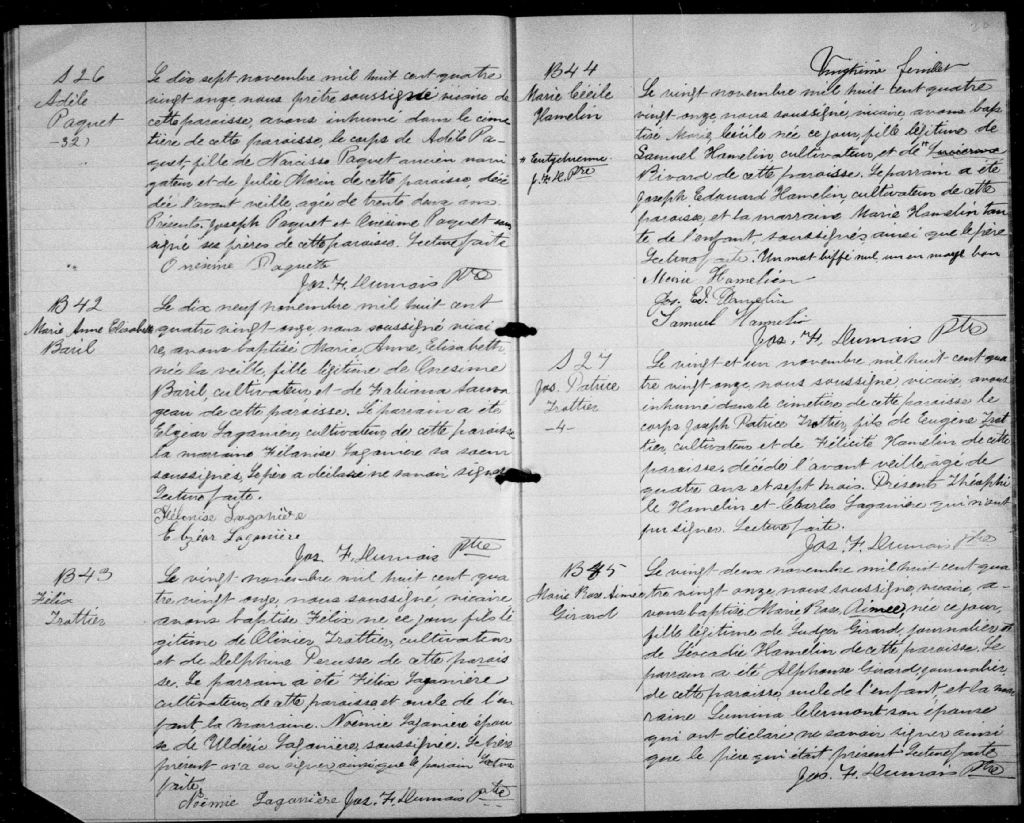 S 26
Adèle
Paquet
-32)
"
Le dix sept novembre mil huit cent quatre
vingt onze, nous prêtre soussigné vicaire de
cette paroisse, avons inhumé dans le cime
tière de cette paroisse, le corps de Adèle Pa-
quet, fille de Narcisse Paquet ancien navi
gateur et de Julie Morin de cette paroisse, décé
dée l'avant veille, agée de trente deux ans.
Présents. Joseph Paquet et Onésime Paquet sous
signé ses frères de cette paroisse. Lecture faite
Onésime Paquette
Jos. F. Dumais Ptre
B 42
Marie Anne Elisabeth
Baril
Le dix neuf novembre mil huit cent
quatre vingt onze, nous soussigné vicai
re, avons baptisé Marie Anne, Elisabeth
née la veille, fille légitime de Onesime
Baril, cultivateur et de Fabiana Sauva
geau de cette paroisse. Le parrain a été
Elzéar Laganière, cultivateur, de cette paroisse
la marraine Mélanise Laganière sa soeur
soussignés. Le père a déclaré ne savoir signer
Lecture faite.
Mélanise Laganière
Elzéar Laganière
Jos. F. Dumais Ptre
B 43
Félix
Trottier
Le vingt novembre mil huit cent qua
tre vingt onze, nous soussigné, vicaire
avons baptisé Félix né ce jour fils lé
gitime de Olivier Trottier, cultivateur
et de Delphine Perusse de cette parois
se. Le parrain a été Félix Laganière
cultivateur, de cette paroisse et oncle de l'en
fant, la marraine. Noémie Laganière épou
se de Uldéric Laganière, soussignée. Le père
présent n'a su signer ainsi que le parrain Lecture
faite.
Noëmie Laganière Jos. F. Dumais Ptre
Vingtième feuillet
B 44
Marie Cécile
Hamelin
" Eutychienne
J. F. D. Ptre
Le vingt novembre mil huit cent quatre
vingt onze, nous soussigné, vicaire, avons bap
tisé Marie Cécile née ce jour, fille légitime de
Samuel Hamelin, cultivateur, et de "
Bivard de cette paroisse. Le parrain a été
Joseph Edouard Hamelin, cultivateur de cette
paroisse, et la marraine Marie Hamelin tan
te de l'enfant, soussignés ainsi que le père
Lecture faite. Un mot biffé nul un en marge bon
Marie Hamelin
Jos. Ed. Hamelin
Samuel Hamelin
Jos. F. Dumais Ptre
S 27
Jos. Patrice
Trottier
-4-
Le vingt et un novembre, mil huit cent qua
tre vingt onze, nous soussigné vicaire, avons
inhumé dans le cimetière de cette paroisse le
corps Joseph Patrice Trottier, fils de Eugène Trot
tier, cultivateur et de Félicité Hamelin de cette
paroisse. décédé l'avant veille, agé de
quatre ans et sept mois. Présents Théophi
le Hamelin et Charles Laganière qui n'ont
pu signer. Lecture faite.
Jos. F. Dumais Ptre
B 45
Marie Rose Aimée
Girard
Le vingt deux novembre mil huit cent qua
tre vingt onze nous soussigné, vicaire, a-
vons baptisé Marie Rose, Aimée, née ce jour,
fille légitime de Ludger Girard, journalier et
de Léocadie Hamelin de cette paroisse. Le
parrain a été Alphonse Girard, journalier
de cette paroisse, oncle de l'enfant et la mar
raine Lumina Clermont son épouse
qui ont déclaré ne savoir signer ainsi
que le père qui était présent Lecture faite
Jos. F. Dumais Ptre